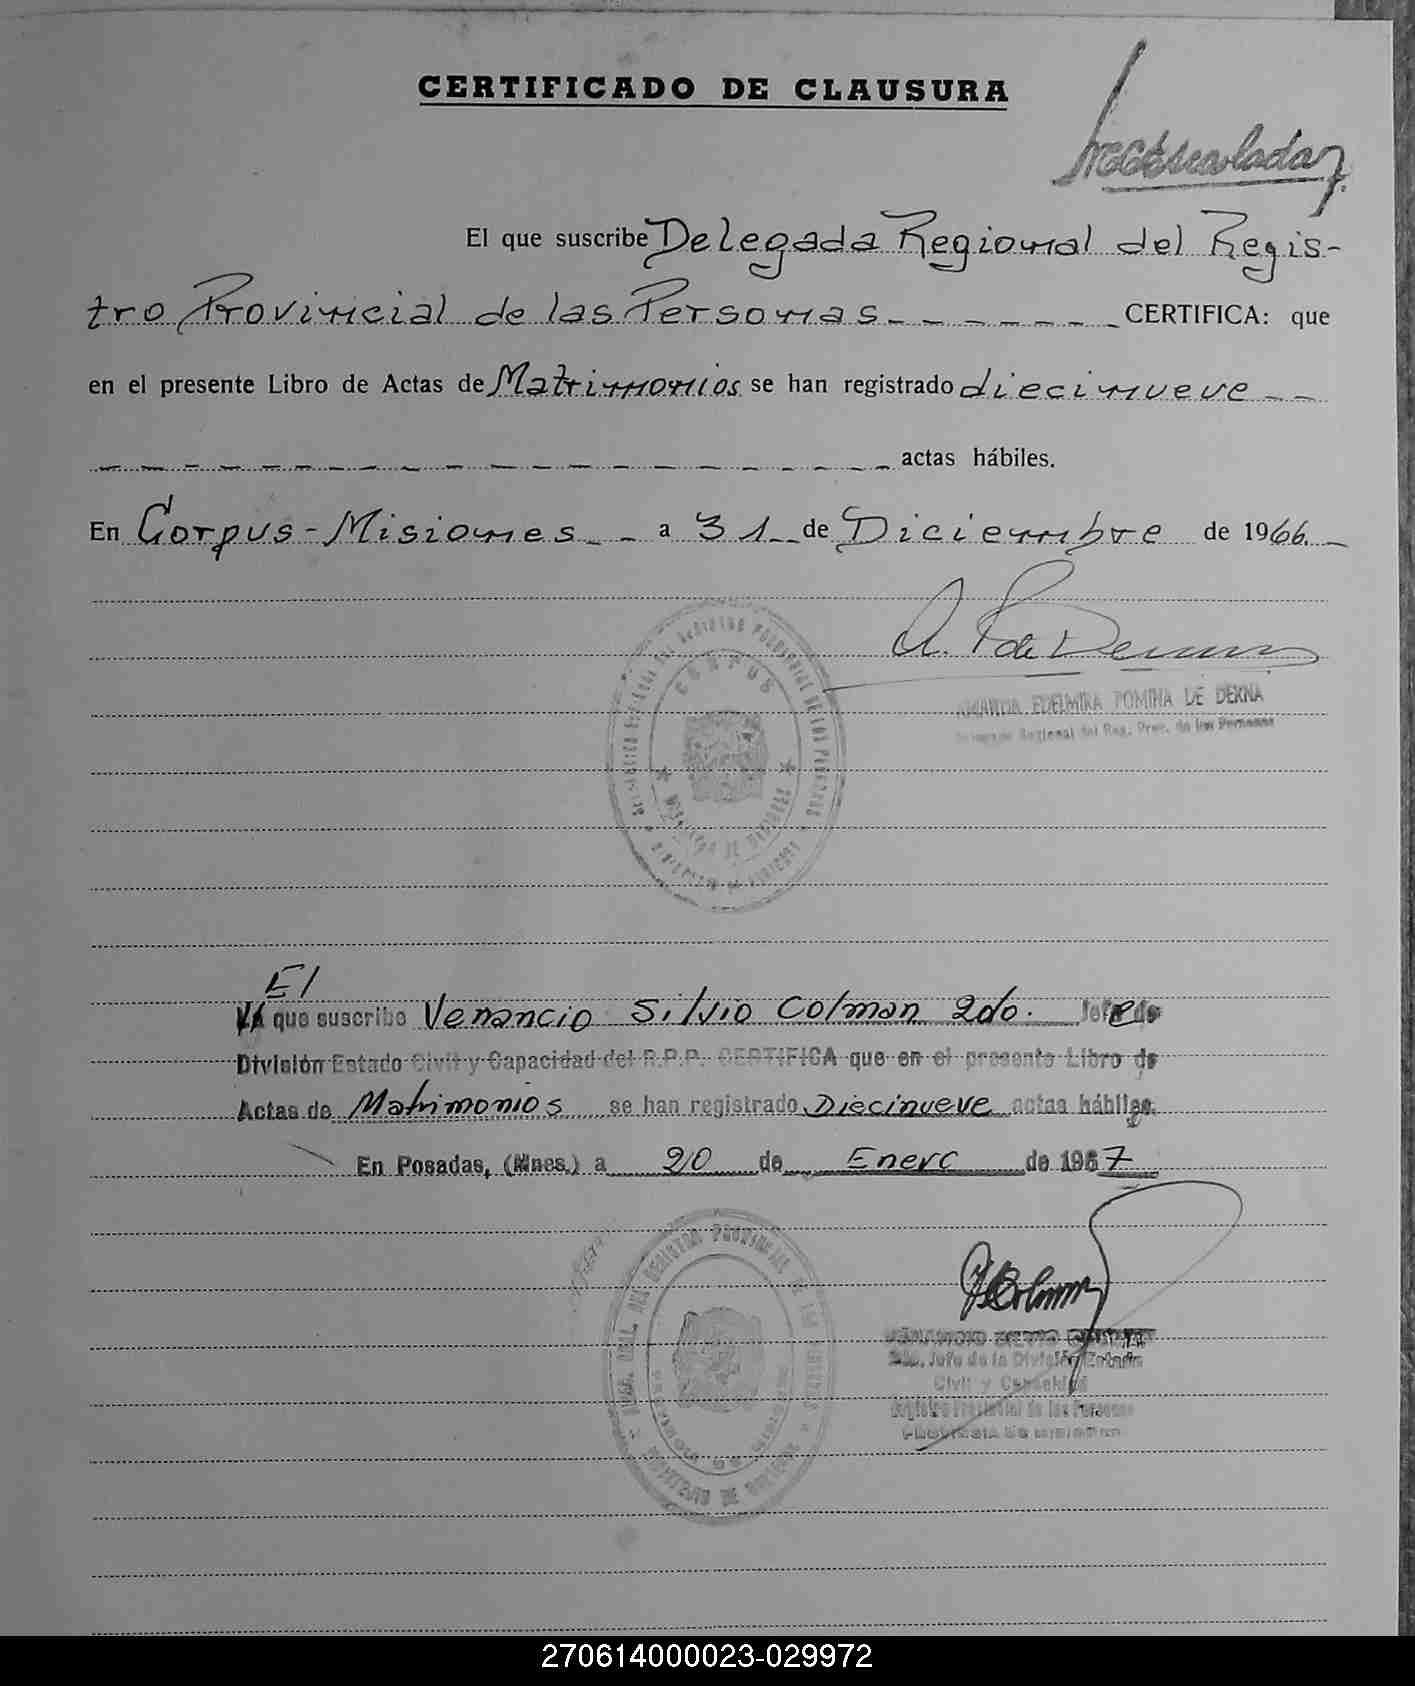 CERTIFICADO DE CLAUSURA
El que suscribe Delegada Regional del Regis-
tro Provincial de las Personas - - - - - - CERTIFICA: que
en el presente Libro de Actas de Matrimonios se han registrado diecinueve - -
- - - - - - - - - - - - - - - - - - actas hábiles.
En Corpus - Misiones - - a 31 - de Diciembre de 1966. -
AMANDA EDELMIRA POMINA DE DERNA
Delegada Regional del Reg. Prov. de las Personas
CORPUS
El
que suscribe Venancio Silvio Colman 2do. Jefe de
División Estado Civil y Capacidad del R.P.P. CERTIFICA que en el presente Libro de
Actas de Matrimonios se han registrado Diecinueve actas hábiles.
En Posadas, (Mnes.) a 20 de Enero de 1967
2do. Jefe de la División Estado
Civil y Capacidad
Registro Provincial de las Personas
PROVINCIA DE MISIONES
270614000023-029972